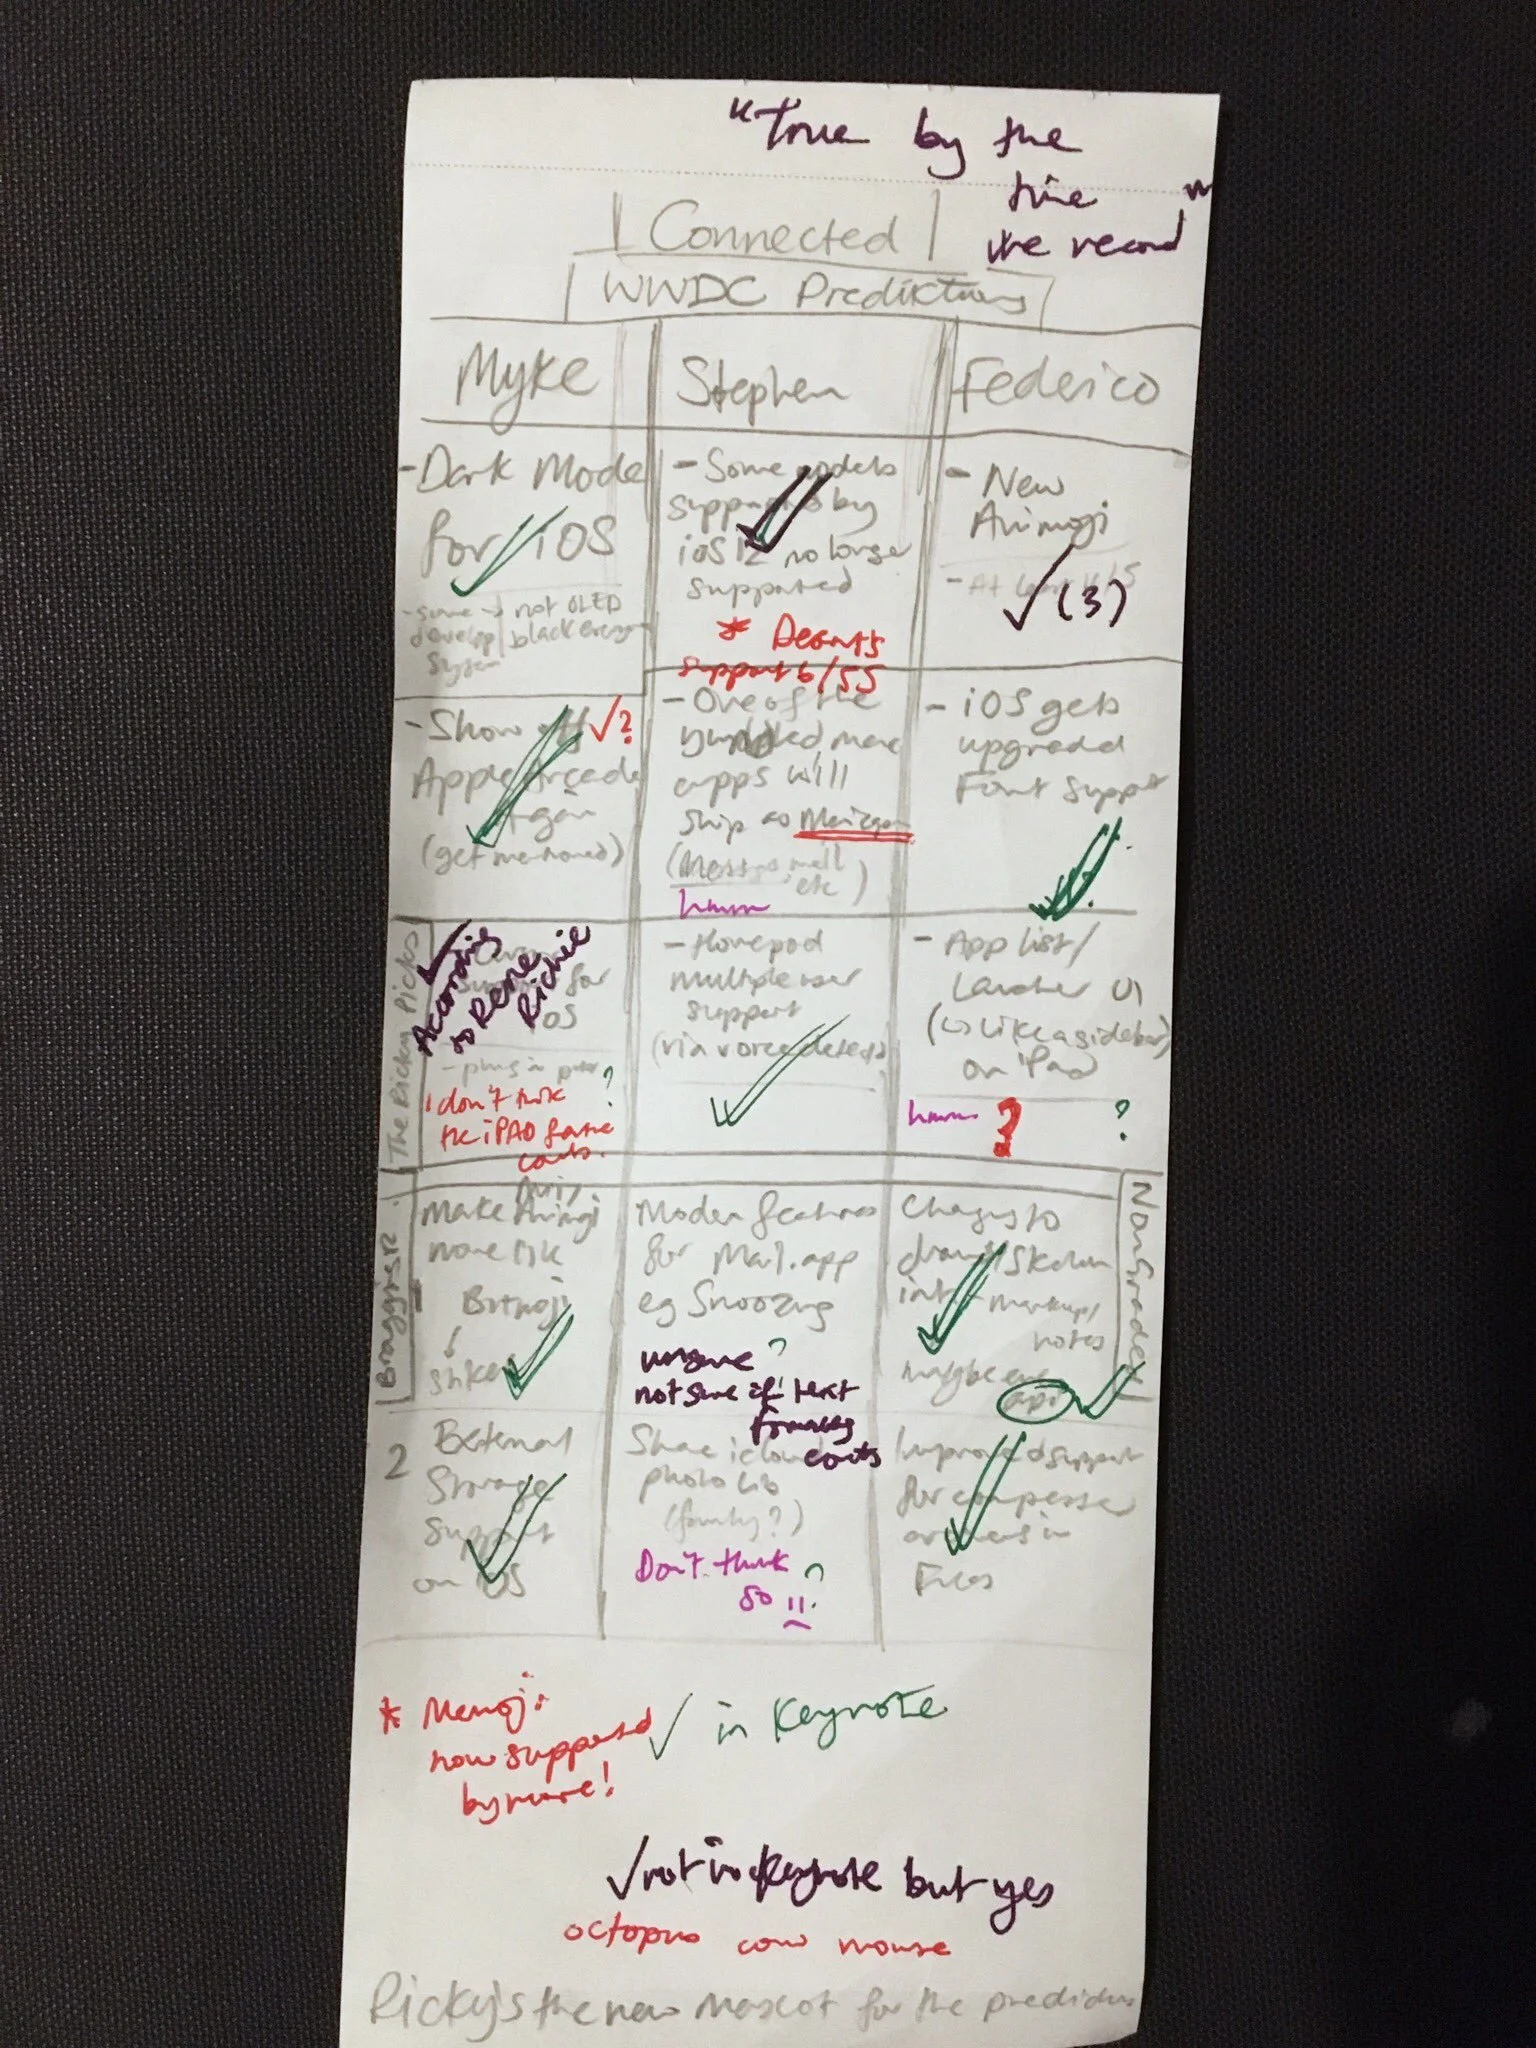 "True by the
time "
we record
Connected
WWDC Predictions
Myke
Stephen
Federico
- Dark Mode
for iOS
- some → not OLED
develop black
system
- Some models
supported by
iOS 12 no longer
supported
* Doesn't
support 6/5S
- New
Animoji
- At least
✓ (3)
- Show off ✓?
Apple Arcade
Again
(get mentioned)
- One of the
mac
apps will
ship as
(Messages, mail
etc)
hmm
- iOS gets
upgraded
Font Support
The Ricky Picks
According
to Rene
Richie
for
iOS
- plug in
I don't think ?
the iPAD
counts.
- Homepod
multiple user
support
(via voice detect)
- App list/
Launcher UI
(↳ like a sidebar)
on iPad
hmm ? ?
Braggsies
Non Graded
1
Make Animoji
more like
Bitmoji
↓
sticker
Modern features
for Mail.app
eg Snoozing
unsure ?
not sure if text
counts
Changes to
drawing/Sketch
in Markup/
notes
maybe even
api
2
External
Storage
Support
on iOS
Share icloud
photo lib
(family?)
Don't think ?
so !!
Improved support
for compressed
archives in
Files
* Memoji
now supported
by more!
✓ in Keynote
✓ not in keynote but yes
octopus cow mouse
Ricky's the new mascot for the